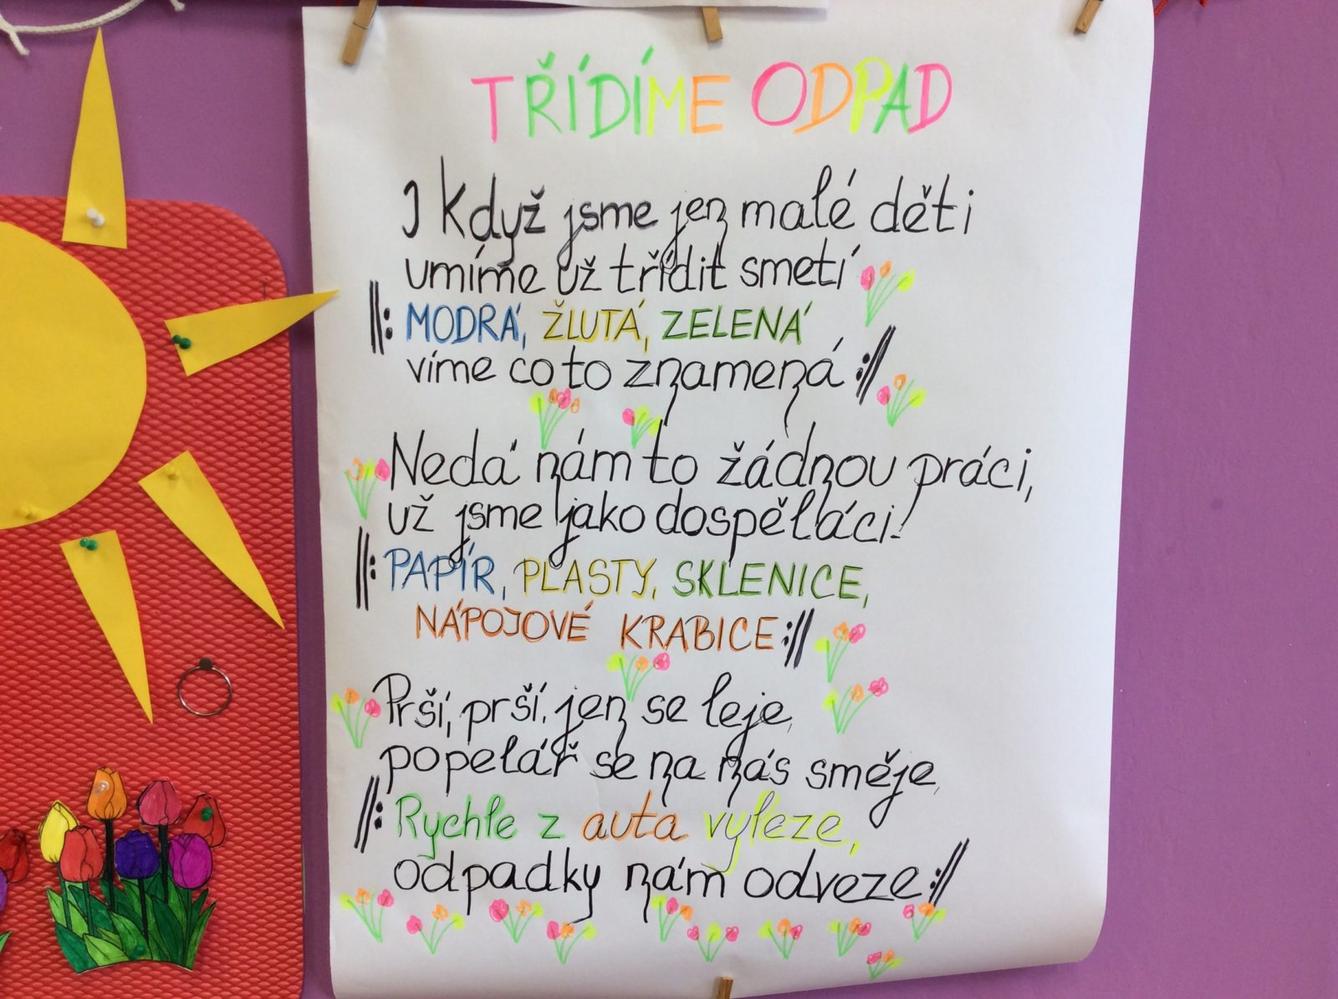 TŘÍDÍME ODPAD
I když jsme jen malé děti
umíme už třídit smetí
‖: MODRÁ, ŽLUTÁ, ZELENÁ
víme co to znamená :‖
Nedá nám to žádnou práci,
už jsme jako dospěláci!
‖: PAPÍR, PLASTY, SKLENICE,
NÁPOJOVÉ KRABICE :‖
Prší, prší, jen se leje,
popelář se na nás směje,
‖: Rychle z auta vyleze,
odpadky nám odveze :‖